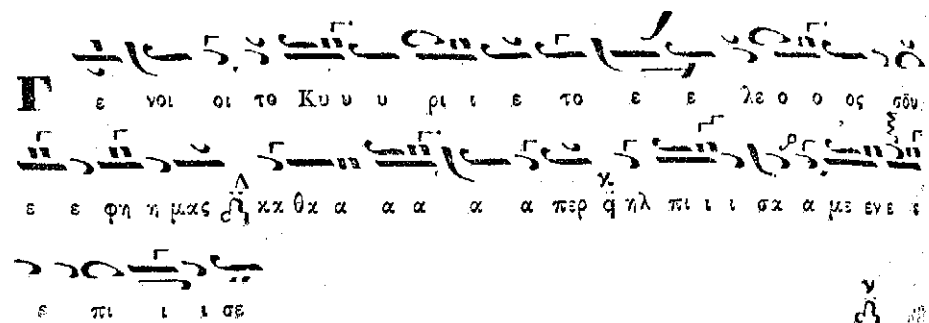 Γ ε νοι οι το Κυ υ υ ρι ι ε το ε ε λε ο ο ος σου
ε ε φη η μας κα θα α α α α α περ ηλ πι ι ι σα α με εν ε
ε πι ι ι σε